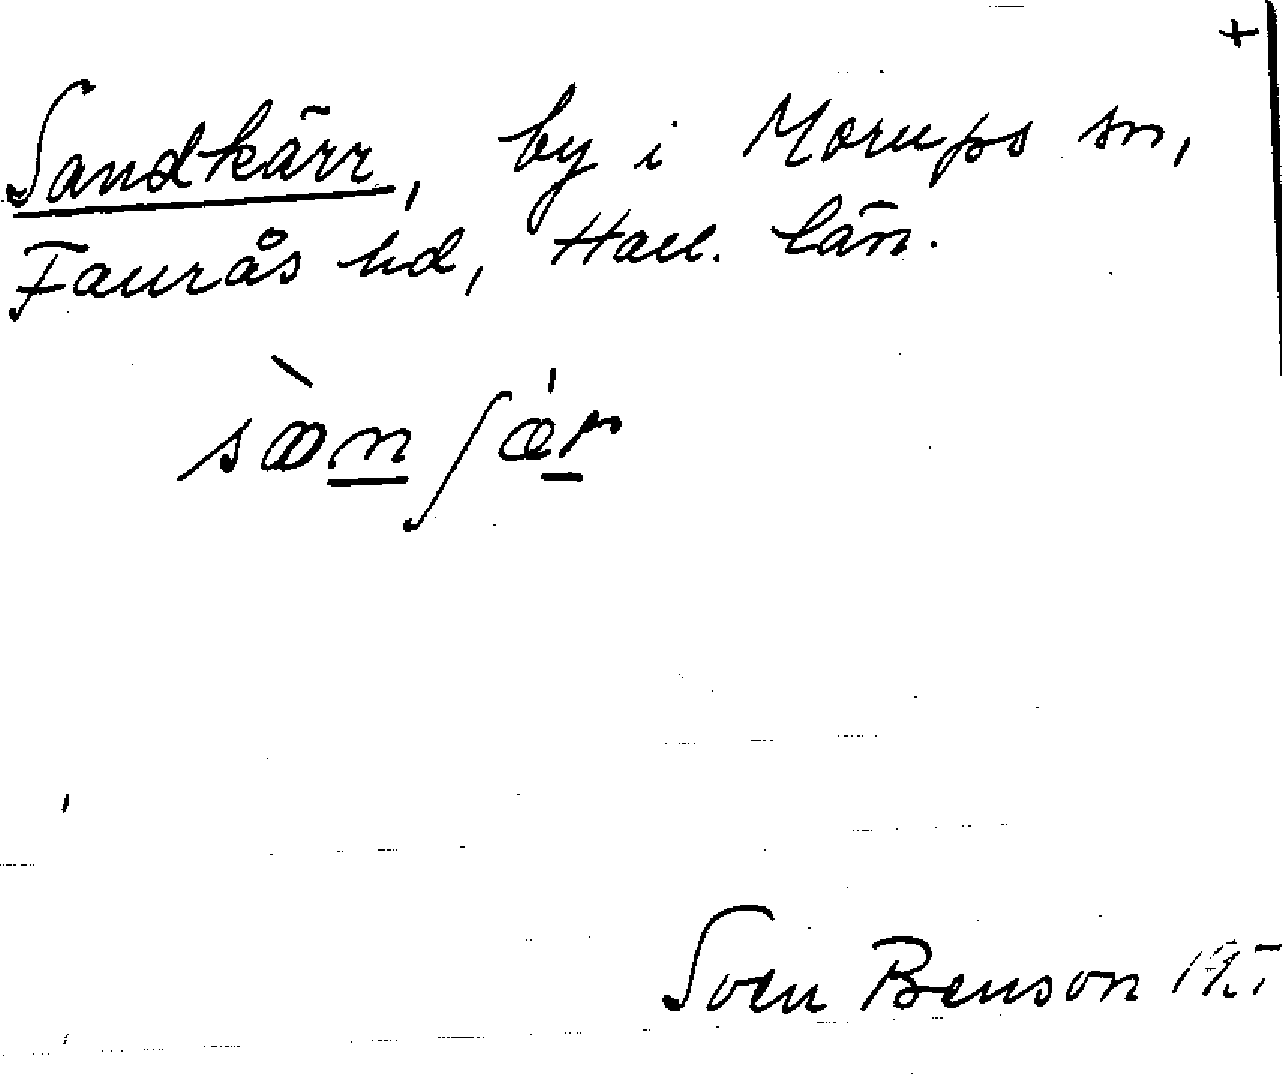 +
Sandkärr, by i Morups sn,
Faurås hd, Hall. län.
sàn ʃǽr
Sven Benson